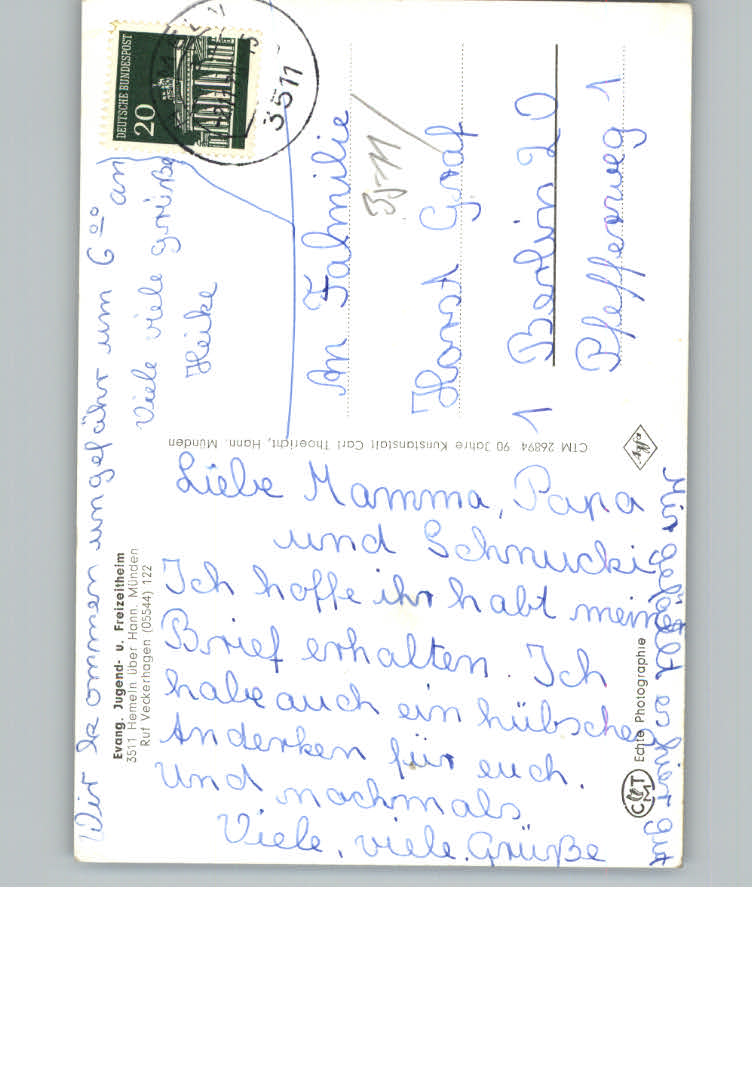 Evang. Jugend- u. Freizeitheim
3511 Hemeln über Hann. Münden
Ruf Veckerhagen (05544) 122
Liebe Mamma, Papa
und Schnucki
Ich hoffe ihr habt meinen
Brief erhalten. Ich
habe auch ein hübsches
Anderken für euch.
Und nochmals
Viele, viele Grüße
Mir gefällt es hier gut
Wir kommen ungefähr um 6 00 an
Viele viele grüße
Heike
CTM 26894 90 Jahre Kunstanstalt Carl Thoericht, Hann. Münden
Echte Photographie
CTM
DEUTSCHE BUNDESPOST
20
3511
An Fahmilie
35-11
Horst Graf
1 Berlin 20
Pfefferweg 1